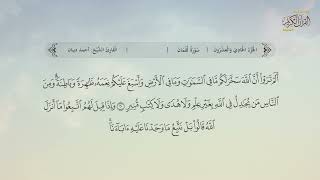 الجزء الحادي والعشرون | سورة لقمان | القارئ الشيخ: أحمد ديبان
أَلَمْ تَرَوْا أَنَّ اللَّهَ سَخَّرَ لَكُم مَّا فِي السَّمَاوَاتِ وَمَا فِي الْأَرْضِ وَأَسْبَغَ عَلَيْكُمْ نِعَمَهُ ظَاهِرَةً وَبَاطِنَةً وَمِنَ
النَّاسِ مَن يُجَادِلُ فِي اللَّهِ بِغَيْرِ عِلْمٍ وَلَا هُدًى وَلَا كِتَابٍ مُّنِيرٍ ۝ وَإِذَا قِيلَ لَهُمُ اتَّبِعُوا مَا أَنزَلَ
اللَّهُ قَالُوا بَلْ نَتَّبِعُ مَا وَجَدْنَا عَلَيْهِ آبَاءَنَا